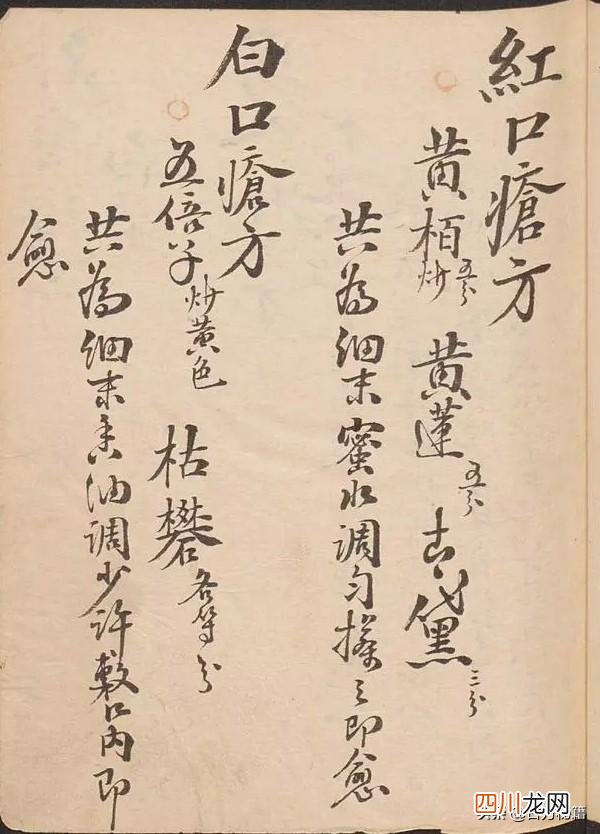 紅口瘡方
黄栢炒五分 黄蓮五分 古黛三分
共為細末蜜水調匀搽之即愈
白口瘡方
五倍子炒黄色 枯礬各等分
共為细末香油調少許敷口内即
愈
四川龙网